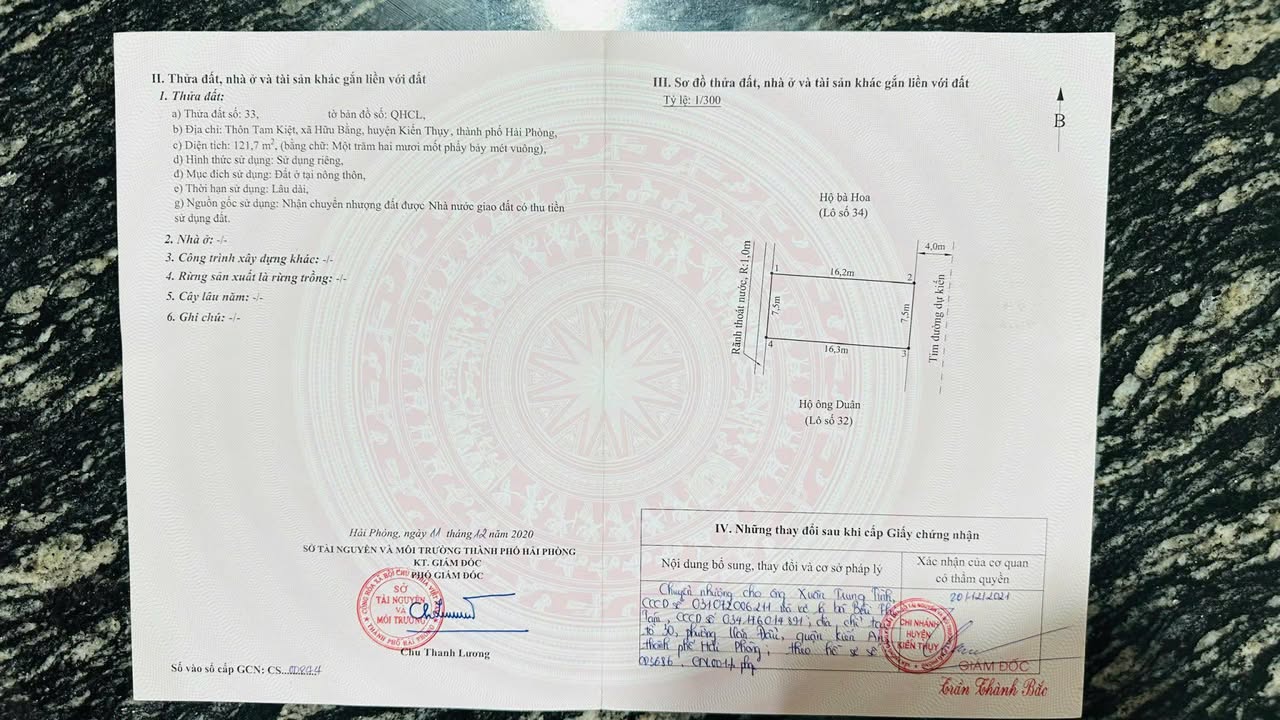 II. Thửa đất, nhà ở và tài sản khác gắn liền với đất
1. Thửa đất:
a) Thửa đất số: 33, tờ bản đồ số: QHCL,
b) Địa chỉ: Thôn Tam Kiệt, xã Hữu Bằng, huyện Kiến Thụy, thành phố Hải Phòng,
c) Diện tích: 121,7 m², (bằng chữ: Một trăm hai mươi mốt phẩy bảy mét vuông),
d) Hình thức sử dụng: Sử dụng riêng,
đ) Mục đích sử dụng: Đất ở tại nông thôn,
e) Thời hạn sử dụng: Lâu dài,
g) Nguồn gốc sử dụng: Nhận chuyển nhượng đất được Nhà nước giao đất có thu tiền
sử dụng đất.
2. Nhà ở: -/-
3. Công trình xây dựng khác: -/-
4. Rừng sản xuất là rừng trồng: -/-
5. Cây lâu năm: -/-
6. Ghi chú: -/-
Hải Phòng, ngày 11 tháng 12 năm 2020
SỞ TÀI NGUYÊN VÀ MÔI TRƯỜNG THÀNH PHỐ HẢI PHÒNG
KT. GIÁM ĐỐC
PHÓ GIÁM ĐỐC
SỞ
TÀI NGUYÊN
VÀ
MÔI TRƯỜNG
THÀNH PHỐ HẢI PHÒNG
Chu Thanh Lương
Số vào sổ cấp GCN: CS
III. Sơ đồ thửa đất, nhà ở và tài sản khác gắn liền với đất
Tỷ lệ: 1/300
B
Hộ bà Hoa
(Lô số 34)
4,0m
1
16,2m
2
Rãnh thoát nước, R:1,0m
7,5m
7,5m
Tim đường dự kiến
4
16,3m
3
Hộ ông Duân
(Lô số 32)
IV. Những thay đổi sau khi cấp Giấy chứng nhận
Nội dung bổ sung, thay đổi và cơ sở pháp lý
Xác nhận của cơ quan
có thẩm quyền
Chuyển nhượng cho ông Xuân Trung
CCCD số và
CCCD số địa chỉ tại
tổ 30, phường quận Kiến An
thành phố Hải Phòng; theo hồ sơ số
20/12/2021
CHI NHÁNH
HUYỆN
KIẾN THỤY
GIÁM ĐỐC
Trần Thành Bắc